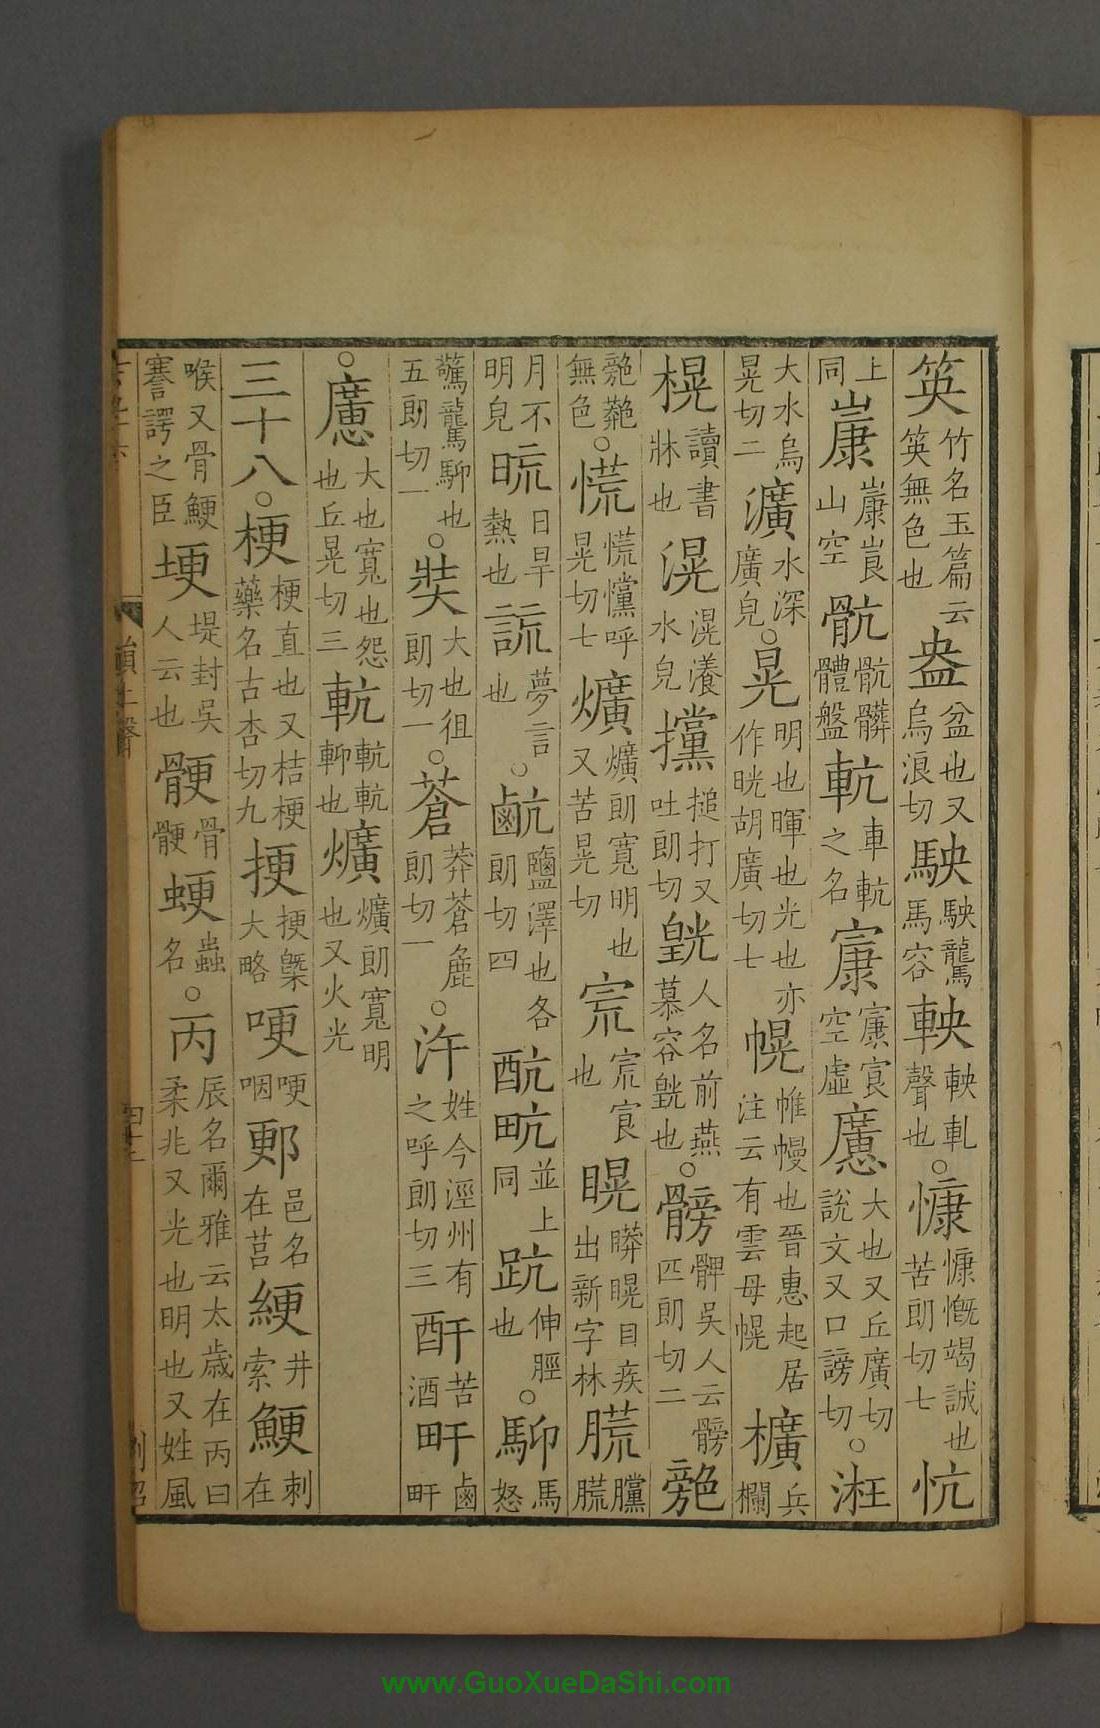 䇦竹名玉篇云䇦無色也盎盆也又烏浪切駚駚䮾馬容軮軮軋聲也○慷慷慨竭誠也苦朗切七忼
上同嵻嵻崀山空骯骯髒體盤䡉車䡉之名㝩㝩㝗空虛懬大也又丘廣切說文又口謗切○汪
大水烏晃切二瀇水深廣皃○晃明也暉也光也亦作晄胡廣切七幌帷幔也晉惠起居注云有雲母幌櫎兵欄
榥讀書牀也滉滉瀁水皃攩搥打又吐朗切皝人名前燕慕容皝也○髈髀吳人云髈匹朗切二
無色○慌慌戃呼晃切七爌爌朗寬明也又苦晃切㡃㡃㝗也晃目疾出新字林䑃臟䑃
月不明皃日旱熱也謊夢言也○鹽澤也各朗切四䟘伸脛也○䭹馬怒
䮾䭹也五朗切一○奘大也徂朗切一○蒼莽蒼麁朗切一○汻姓今涇州有之呼朗切三苦酒鹵
○懬大也寬也怨也丘晃切三䡉也爌爌朗寬明也又火光
三十八○梗梗直也又桔梗藥名古杏切九挭挭槩大略哽哽咽郠邑名在莒綆井索鯁刺在
喉又骨鯁謇諤之臣埂堤封吳人云也骾骨骾䱍蟲名○丙辰名爾雅云太歲在丙曰柔兆又光也明也又姓風
www.GuoXueDaShi.com